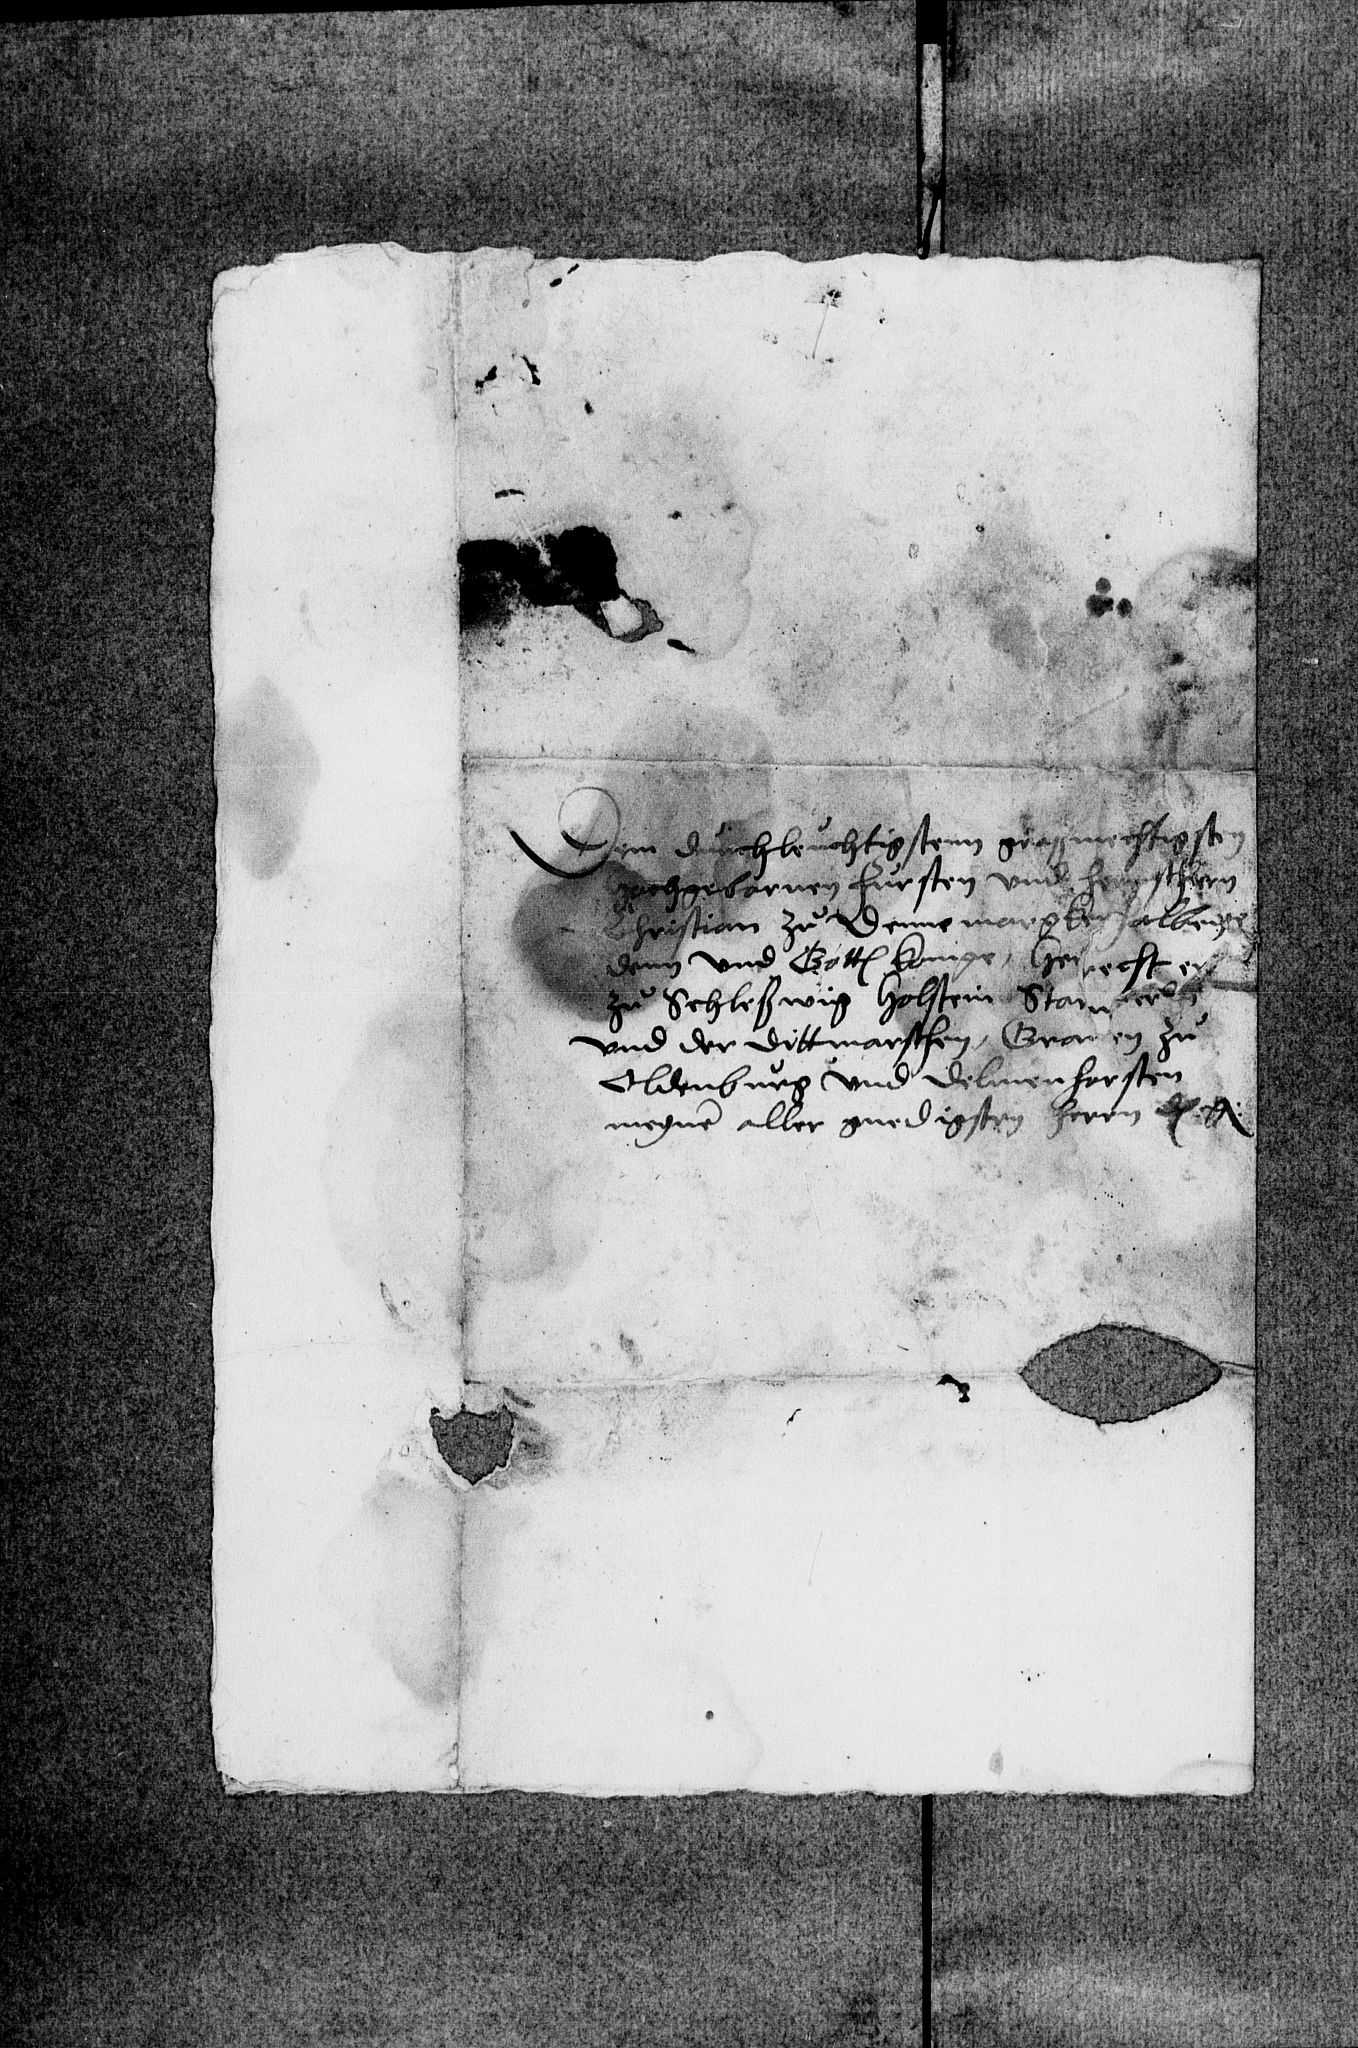 Dem durchleuchtigstenn grossmechtigsten
hochgebornen fursten vnd hern hern
Christian zu Dennemargken
denn vnd Gotten konige, Her
zu Schleßwig Holstein Stormern
vnd der Dittmarschen, Grauen zu
Oldenburg vnd Delmenhorsten
meynem aller gnedigsten herrn